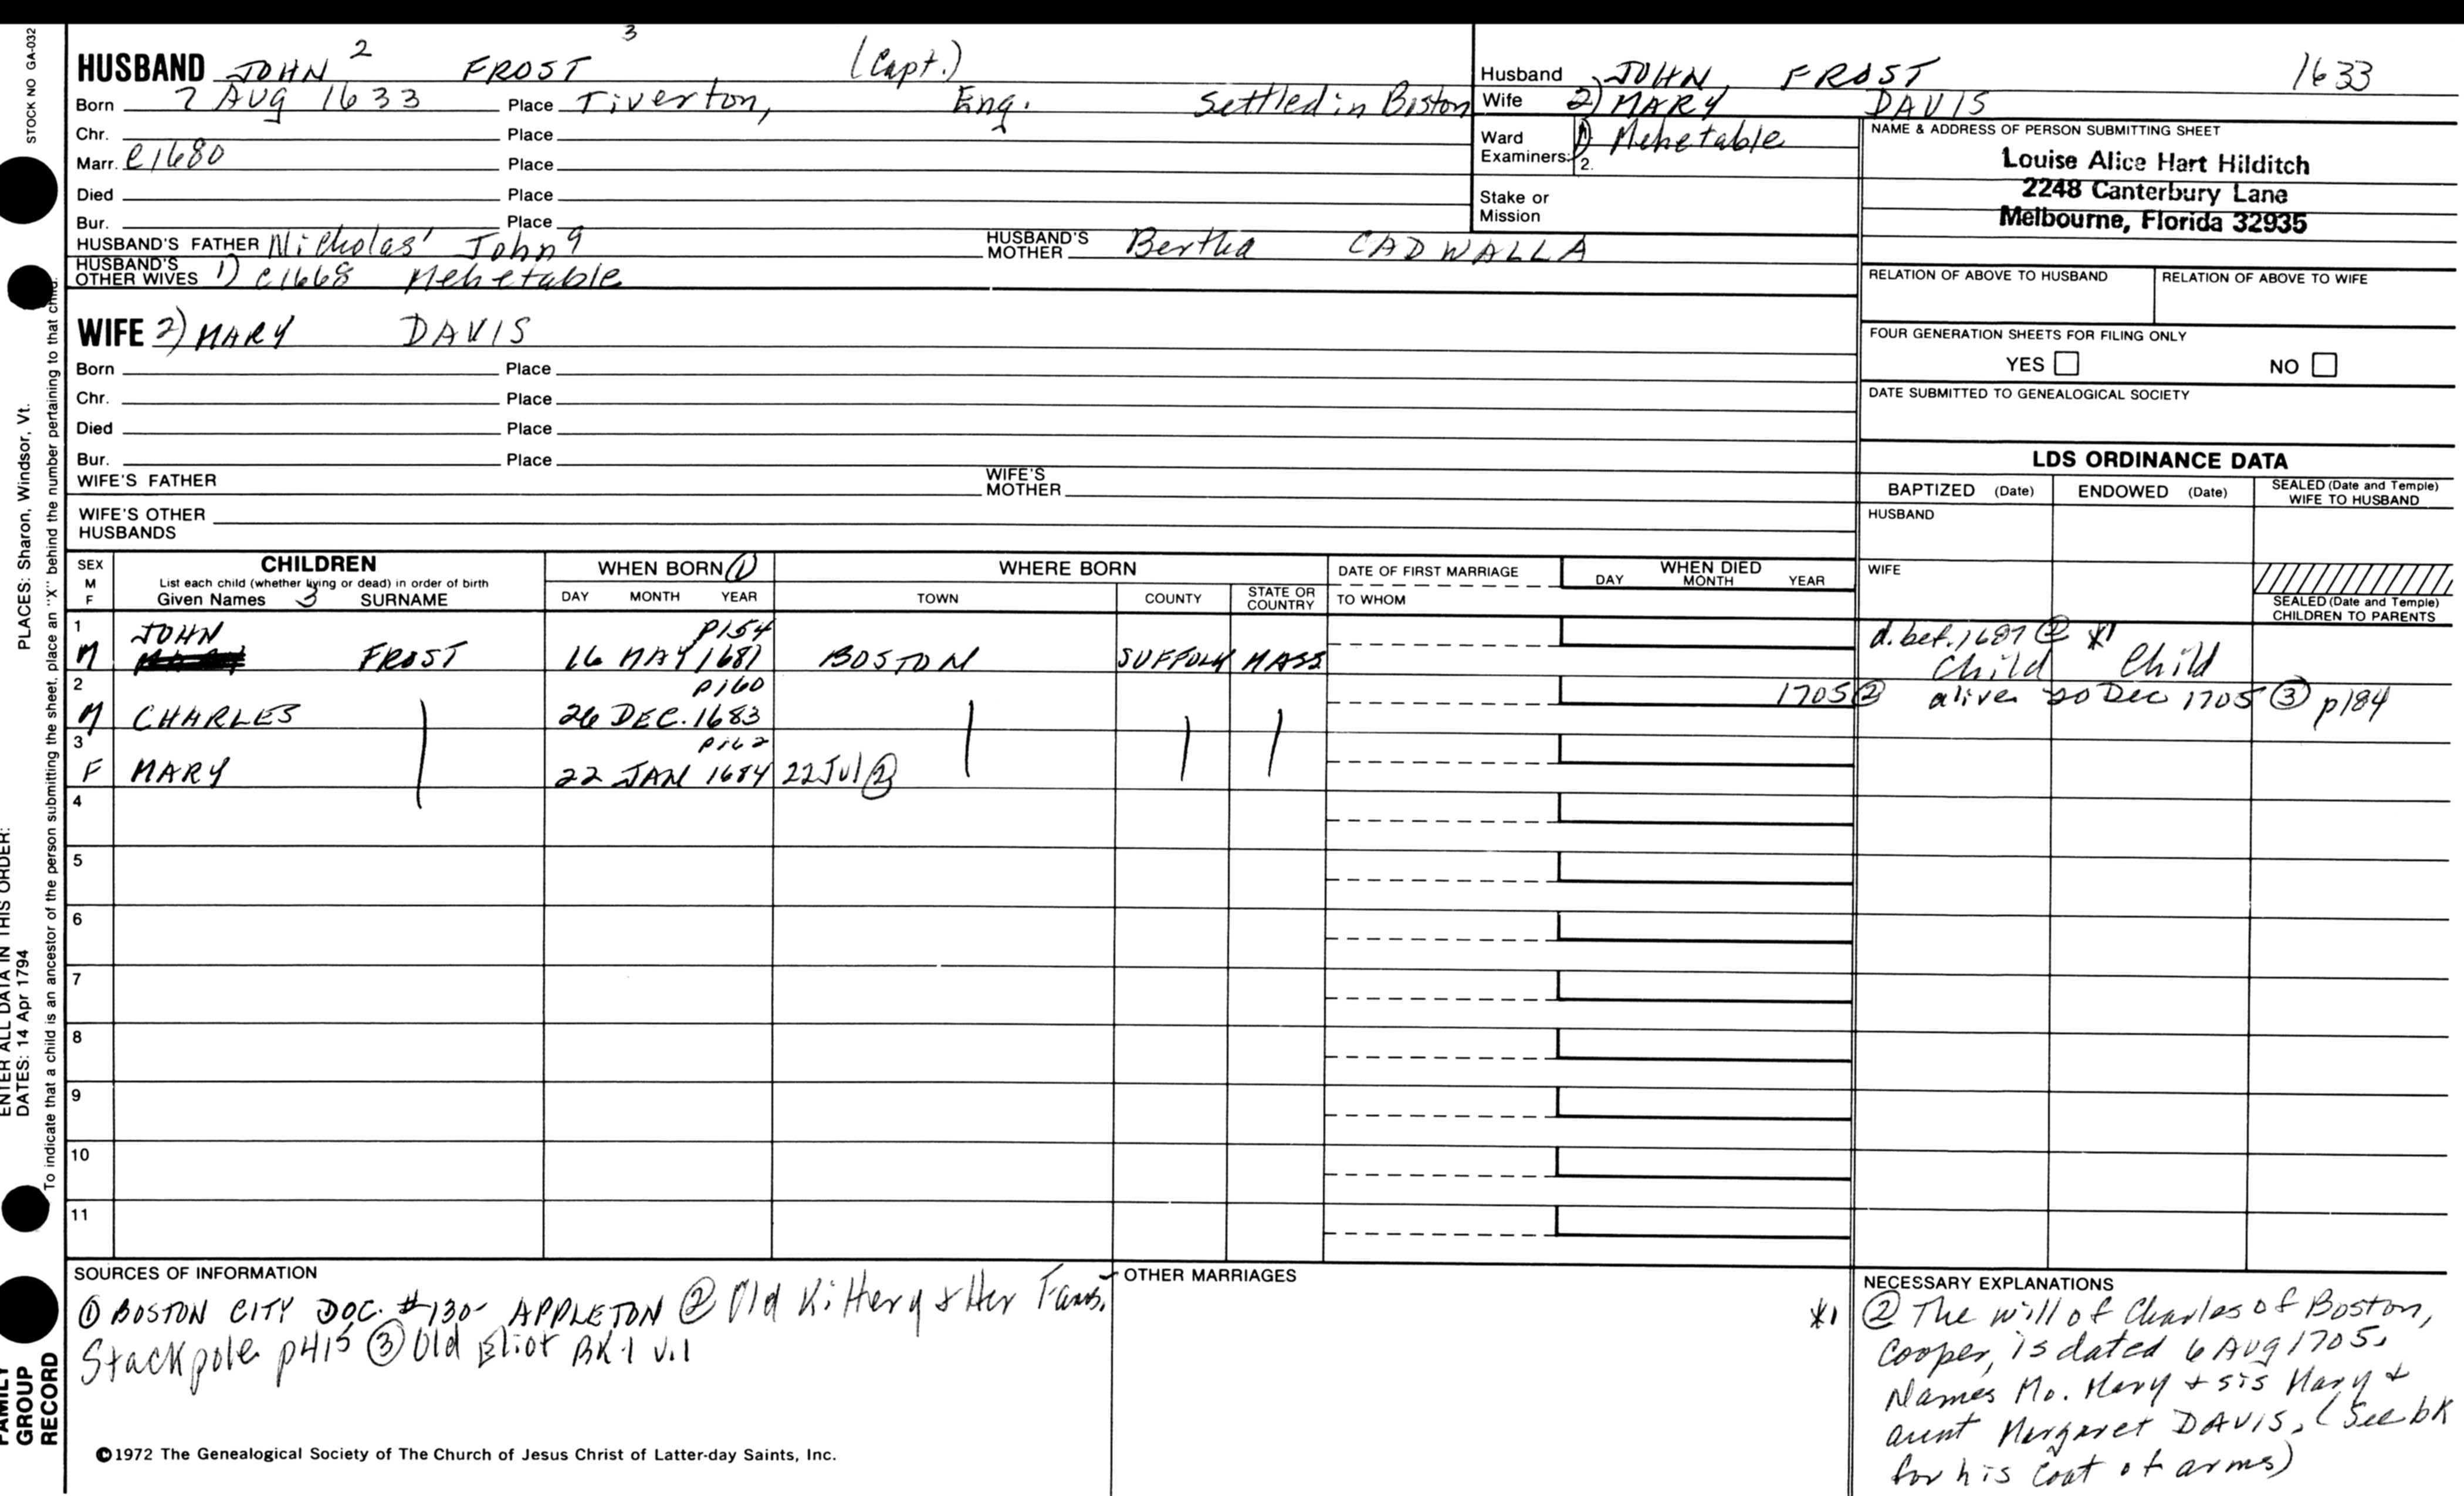 STOCK NO GA-032
HUSBAND JOHN 2 FROST 3 (Capt.)
Born 7 AUG 1633 Place Tiverton, Eng. Settled in Boston
Chr. Place
Marr. c1680 Place
Died Place
Bur. Place
HUSBAND'S FATHER Nicholas' John 9 HUSBAND'S MOTHER Bertha CADWALLA
HUSBAND'S OTHER WIVES 1) c1668 Mehetable
WIFE 2) MARY DAVIS
Born Place
Chr. Place
Died Place
Bur. Place
WIFE'S FATHER WIFE'S MOTHER
WIFE'S OTHER HUSBANDS
Husband JOHN FROST 1633
Wife 2) MARY DAVIS
Ward Examiners: 1) Mehetable
2.
Stake or Mission
NAME & ADDRESS OF PERSON SUBMITTING SHEET
Louise Alice Hart Hilditch
2248 Canterbury Lane
Melbourne, Florida 32935
RELATION OF ABOVE TO HUSBAND RELATION OF ABOVE TO WIFE
FOUR GENERATION SHEETS FOR FILING ONLY
YES NO
DATE SUBMITTED TO GENEALOGICAL SOCIETY
LDS ORDINANCE DATA
BAPTIZED (Date) ENDOWED (Date) SEALED (Date and Temple) WIFE TO HUSBAND
HUSBAND
WIFE
SEALED (Date and Temple) CHILDREN TO PARENTS
SEX M F CHILDREN WHEN BORN ① WHERE BORN DATE OF FIRST MARRIAGE WHEN DIED
List each child (whether living or dead) in order of birth
Given Names 3 SURNAME DAY MONTH YEAR TOWN COUNTY STATE OR COUNTRY TO WHOM DAY MONTH YEAR
1 JOHN p154 d. bef. 1687 ② *1
M FROST 16 MAY 1681 BOSTON SUFFOLK MASS Child Child
2 p160 1705 ② alive 20 Dec 1705 ③ p184
M CHARLES 26 DEC. 1683
3 p162
F MARY 22 JAN 1684 22 Jul ②
4
5
6
7
8
9
10
11
SOURCES OF INFORMATION
① BOSTON CITY DOC. #130- APPLETON ② Old Kittery & Her Fams.
Stackpole p415 ③ Old Eliot BK.1 v.1
OTHER MARRIAGES
NECESSARY EXPLANATIONS
*1 ② The will of Charles of Boston,
Cooper, is dated 6 Aug 1705.
Names Mo. Mary & sis Mary &
aunt Margaret DAVIS. (See bk
for his coat of arms)
©1972 The Genealogical Society of The Church of Jesus Christ of Latter-day Saints, Inc.
FAMILY GROUP RECORD
ENTER ALL DATA IN THIS ORDER:
DATES: 14 Apr 1794
PLACES: Sharon, Windsor, Vt.
To indicate that a child is an ancestor of the person submitting the sheet, place an "X" behind the number pertaining to that child.